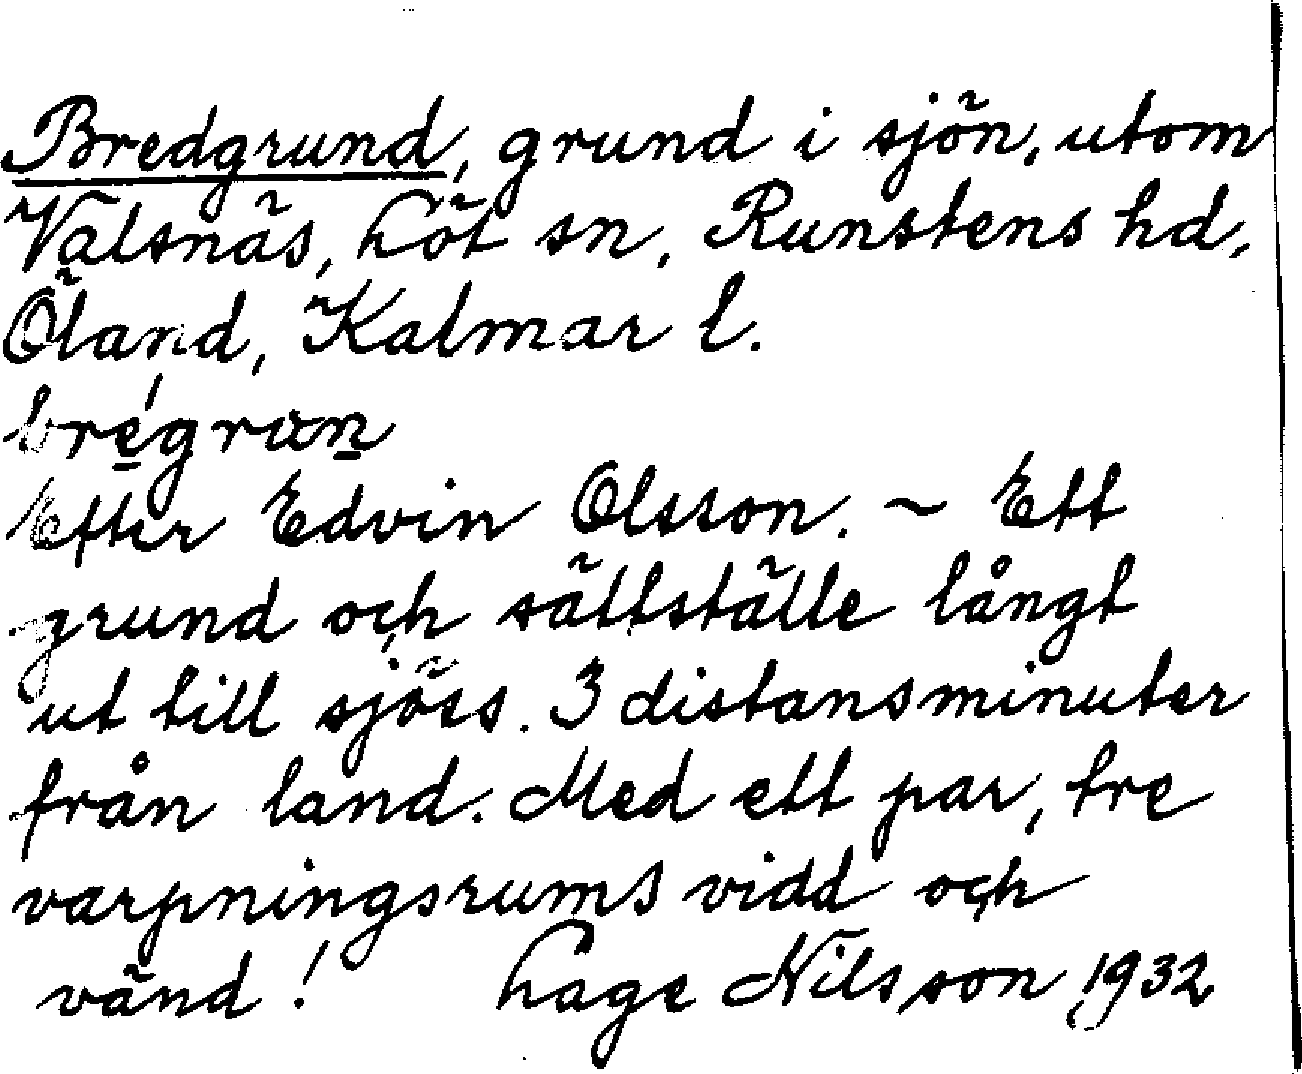 Bredgrund, grund i sjön, utom
Valsnäs, Löt sn, Runstens hd,
Öland, Kalmar l.
bre̱´grun̲
Efter Edvin Olsson. ~ Ett
grund och sättställe långt
ut till sjöss. 3 distansminuter
från land. Med ett par, tre
varpningsrums vidd och
vänd! Lage Nilsson 1932